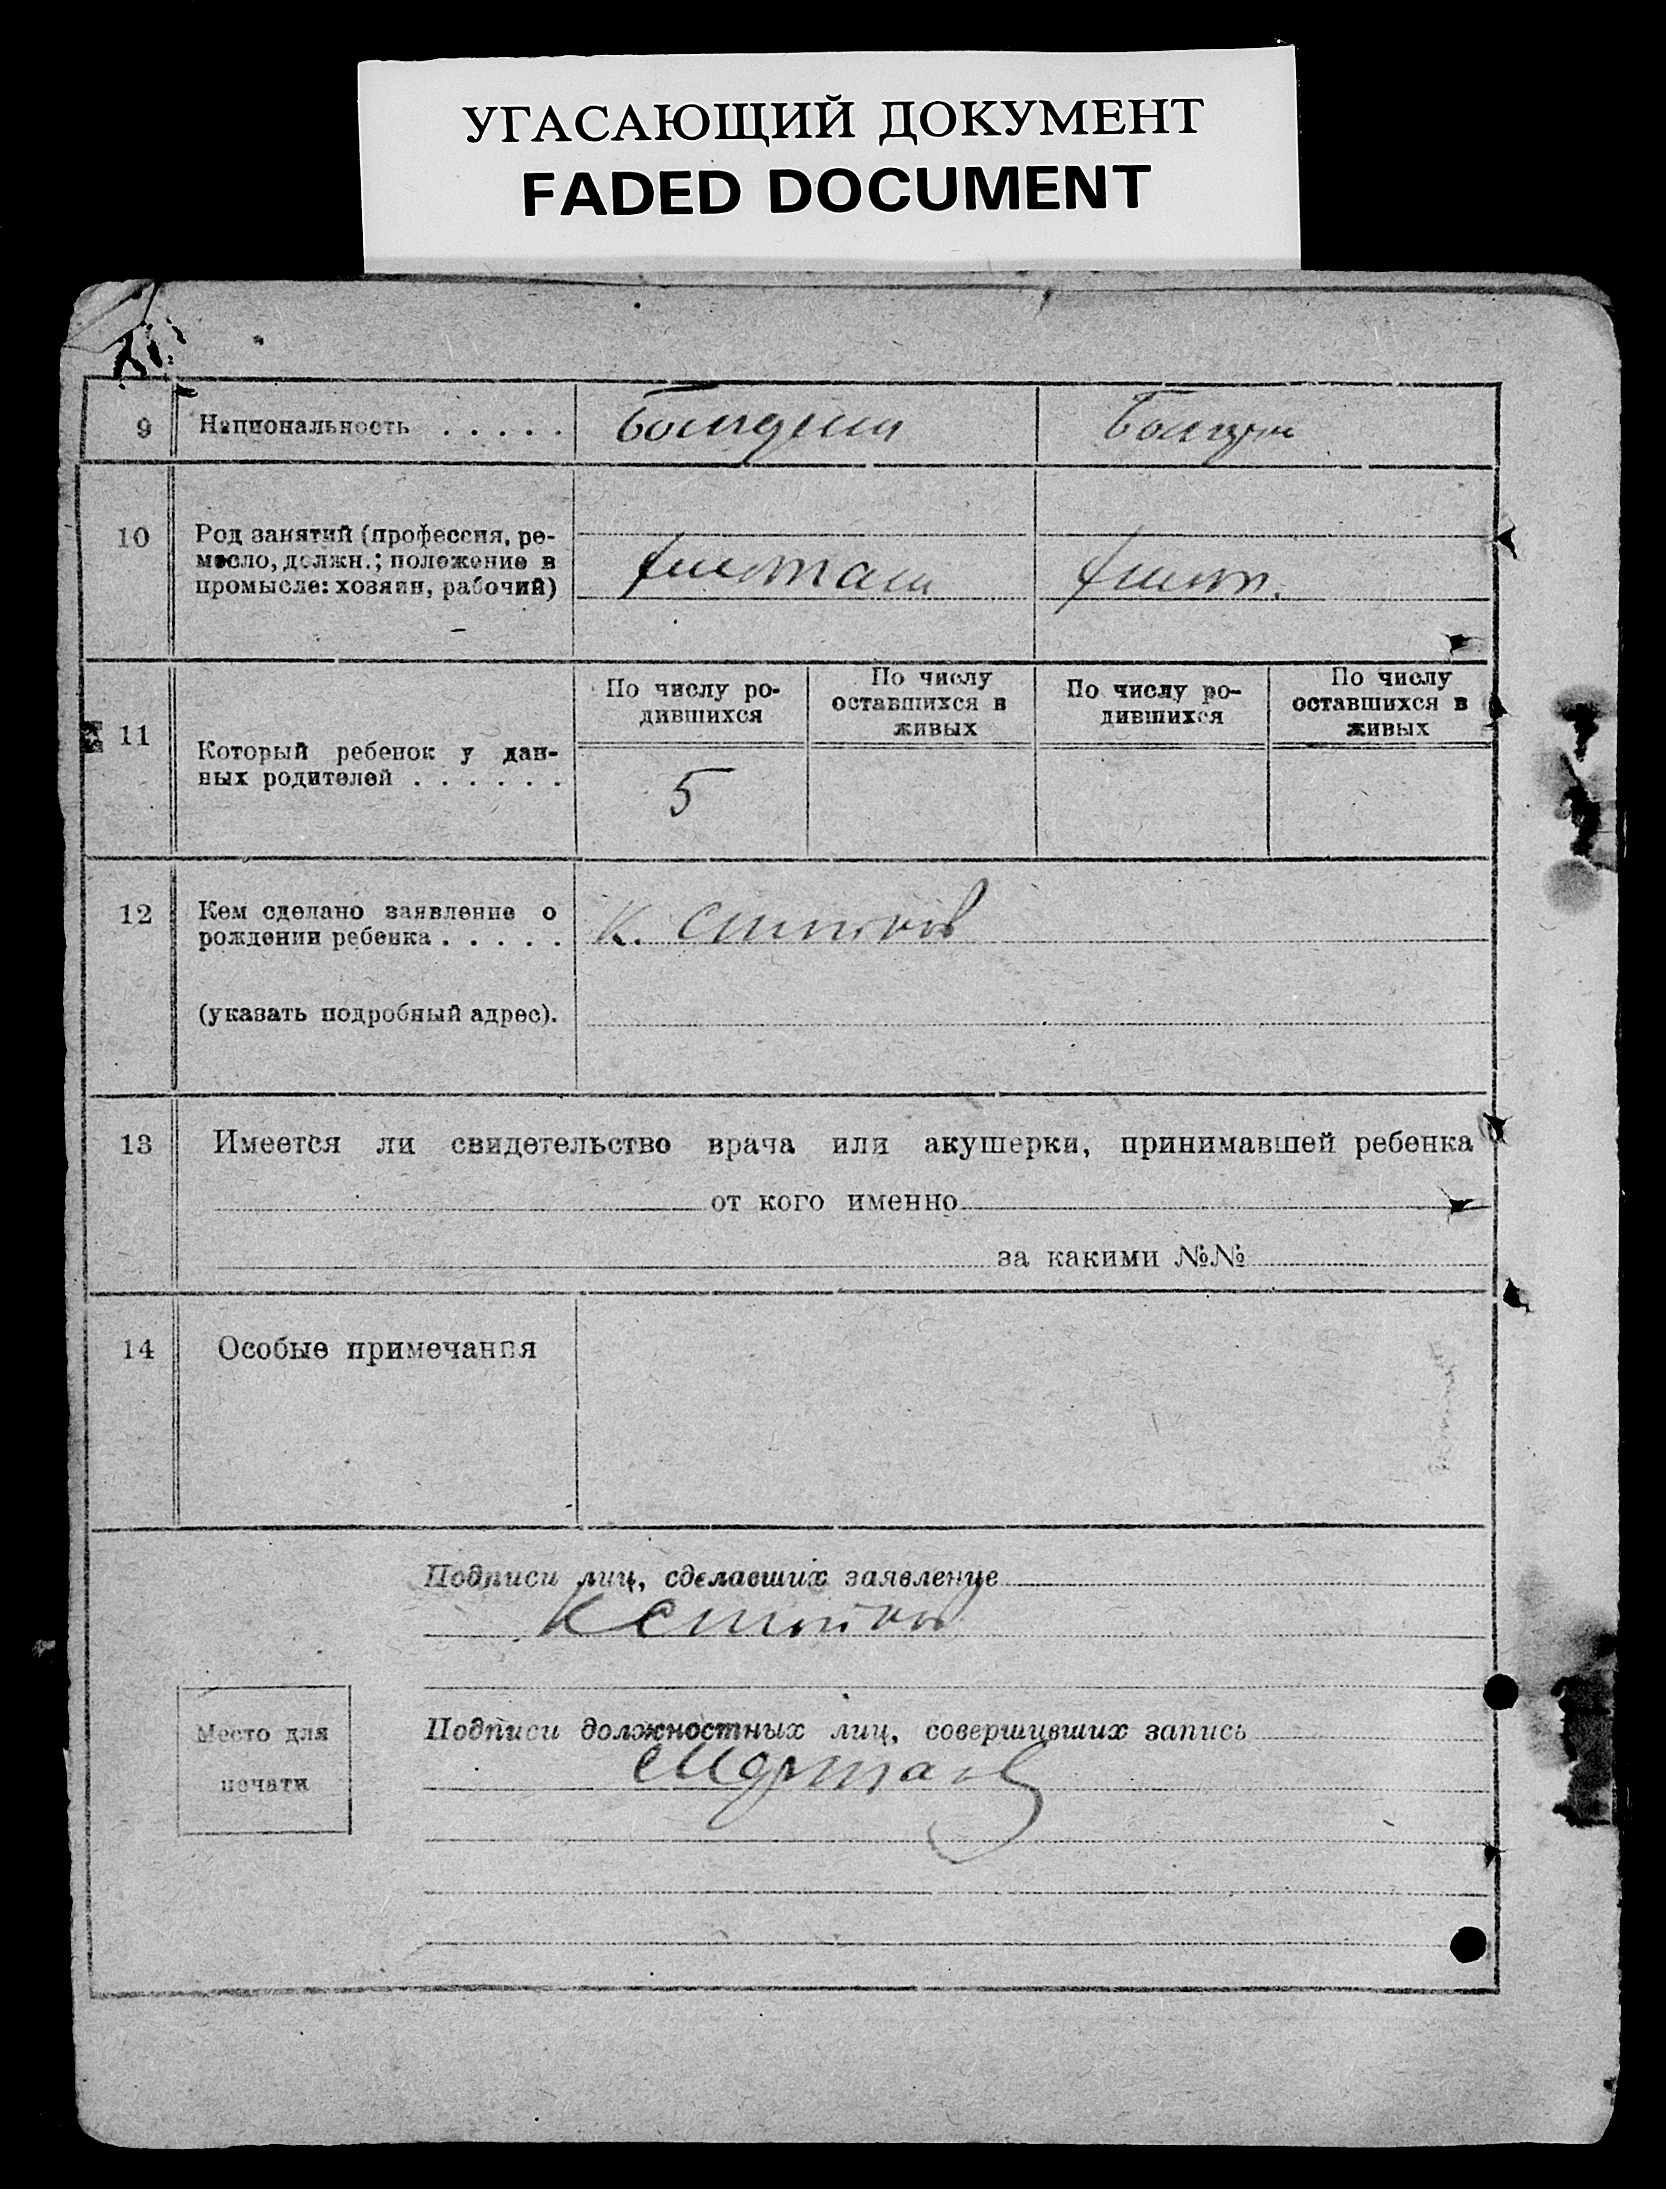 УГАСАЮЩИЙ ДОКУМЕНТ
FADED DOCUMENT
9 Национальность . . . . .
10 Род занятий (профессия, ре-
месло, должн.; положение в
промысле: хозяин, рабочий)
11 Который ребенок у дан-
ных родителей . . . . . .
По числу ро-
дившихся
По числу
оставшихся в
живых
По числу ро-
дившихся
По числу
оставшихся в
живых
5
12 Кем сделано заявление о
рождении ребенка . . . . .
К. Стойков
(указать подробный адрес).
13 Имеется ли свидетельство врача или акушерки, принимавшей ребенка
от кого именно
за какими №№
14 Особые примечания
Подписи лиц, сделавших заявление
К Стойков
Место для
печати
Подписи должностных лиц, совершивших запись